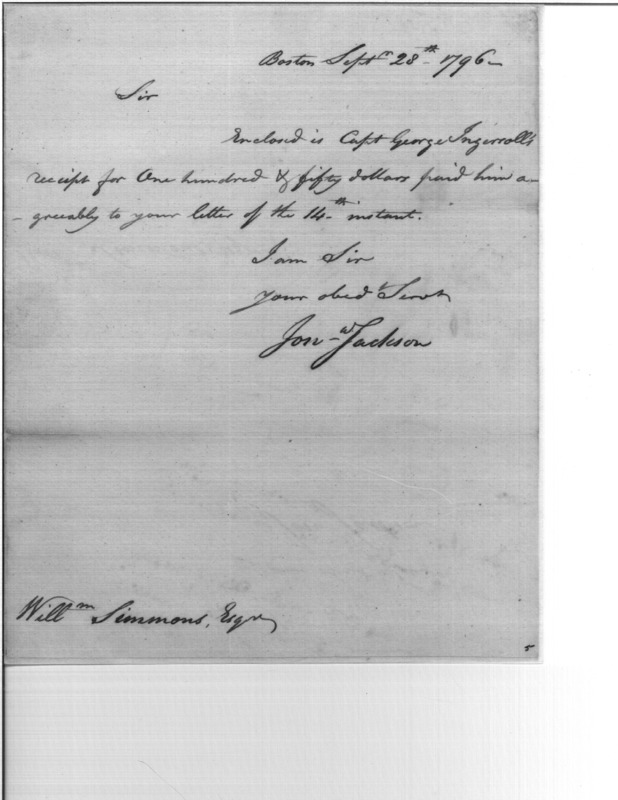 Boston Sept.r 28.th 1796
Sir
Enclosed is Capt George Ingersoll's
receipt for One hundred & fifty dollars paid him a-
-greeably to your letter of the 14.th instant.
I am Sir
your obed.t Servt
Jon.a Jackson
Will.m Simmons, Esqr
5